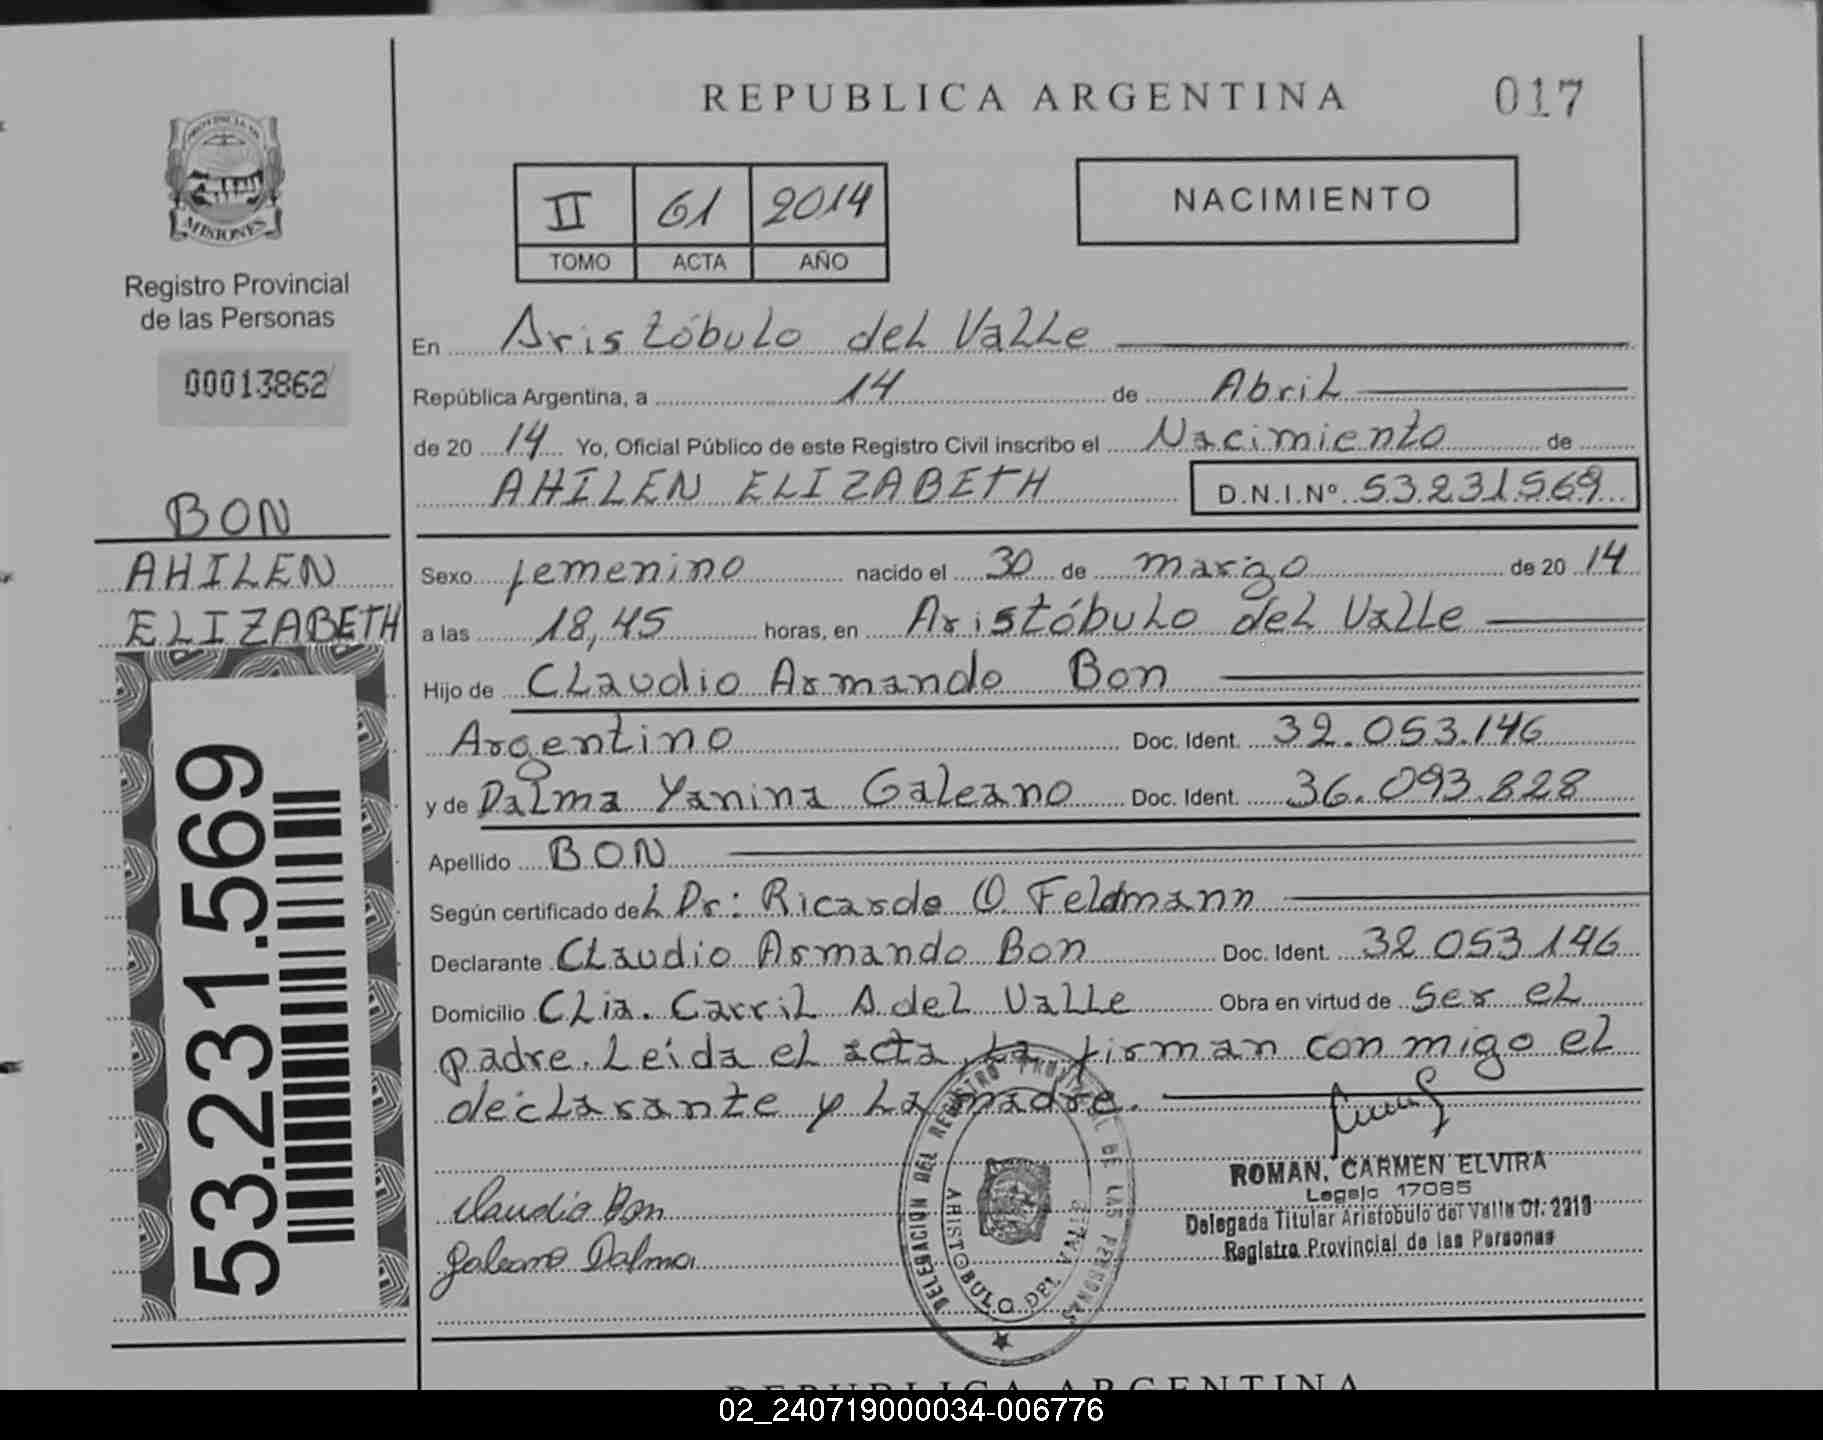 REPUBLICA ARGENTINA
017
PROVINCIA DE
MISIONES
Registro Provincial
de las Personas
00013862
II 61 2014
TOMO ACTA AÑO
NACIMIENTO
En Aristóbulo del Valle
República Argentina, a 14 de Abril
de 20 14 Yo, Oficial Público de este Registro Civil inscribo el Nacimiento de
AHILEN ELIZABETH D.N.I.Nº 53231569
BON
AHILEN
ELIZABETH
53.231.569
Sexo femenino nacido el 30 de marzo de 20 14
a las 18,45 horas, en Aristóbulo del Valle
Hijo de Claudio Armando Bon
Argentino Doc. Ident. 32.053.146
y de Dalma Yanina Galeano Doc. Ident. 36.093.828
Apellido BON
Según certificado del Dr: Ricardo O Feldmann
Declarante Claudio Armando Bon Doc. Ident. 32 053 146
Domicilio CLia. Carril A del Valle Obra en virtud de ser el
padre. Leida el acta, la firman con migo el
declarante y la madre.
Claudio Bon
Galeano Dalma
DELEGACION DEL REGISTRO PROVINCIAL DE LAS PERSONAS
ARISTOBULO DEL VALLE
ROMAN, CARMEN ELVIRA
Legajo 17085
Delegada Titular Aristobulo del Valle Of. 2213
Registro Provincial de las Personas
REPUBLICA ARGENTINA
02_240719000034-006776